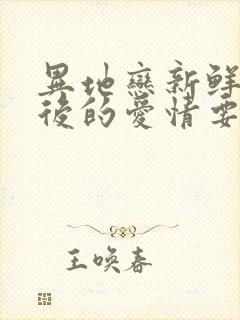 異地戀新鮮
後的愛情要
王喚春